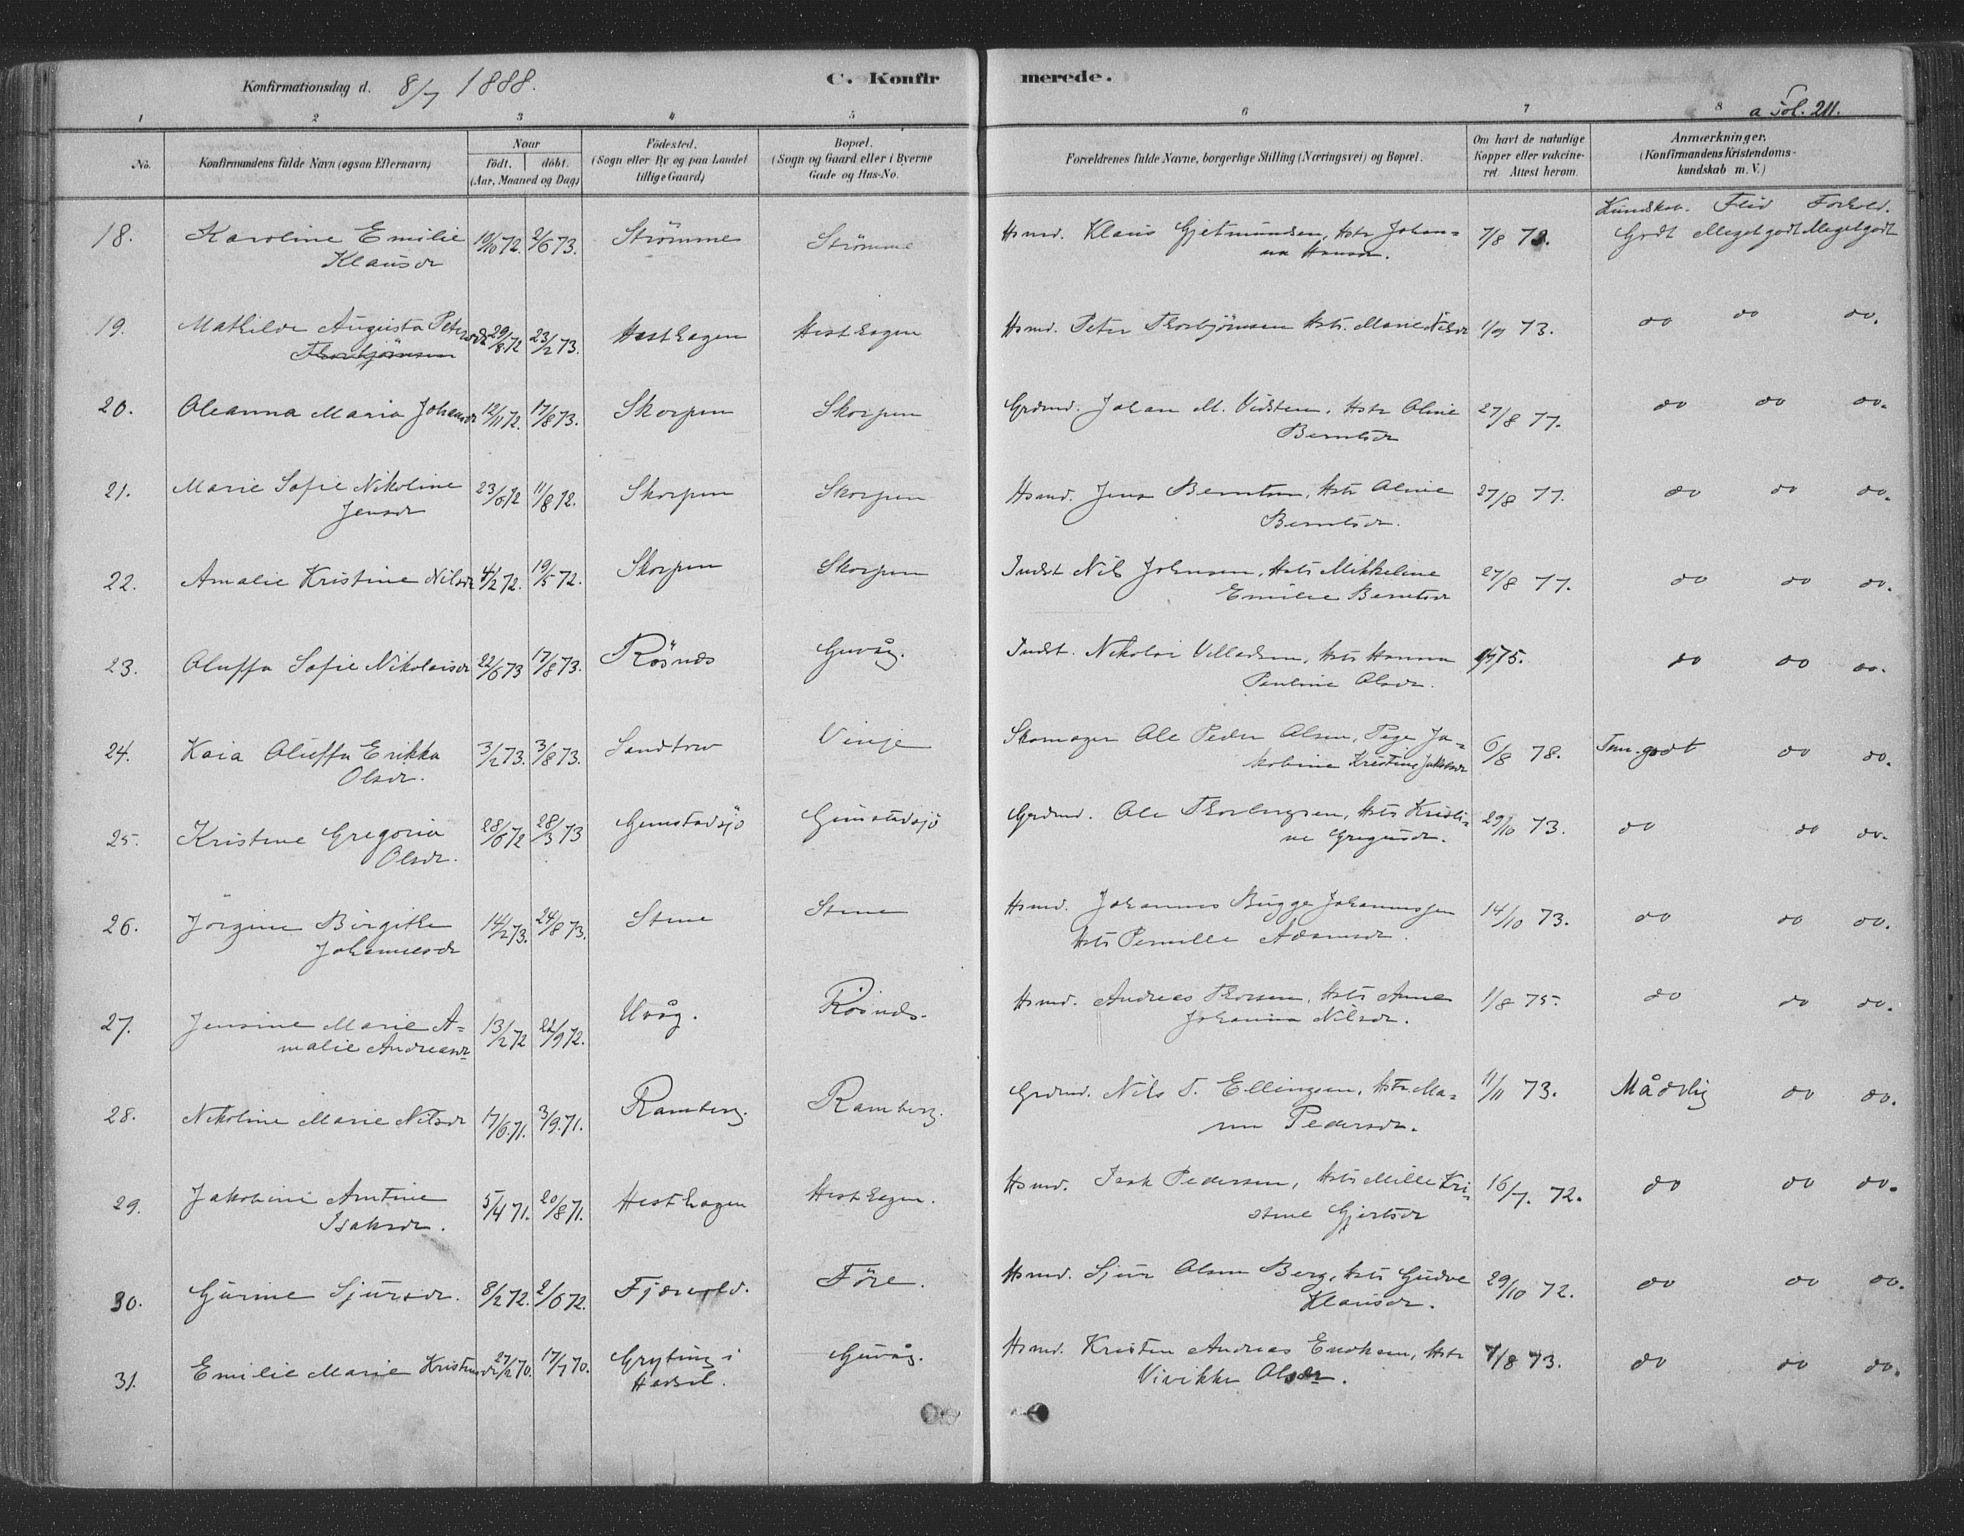 Konfirmationsdag d. 8/7 1888.
C. Konfirmerede.
a Fol. 211.
1 2 3 4 5 6 7 8
No.
Konfirmandens fulde Navn (ogsaa Efternavn)
Naar
født. døbt.
(Aar, Maaned og Dag)
Födested.
(Sogn eller By og paa Landet
tillige Gaard)
Bopæl.
(Sogn og Gaard eller i Byerne
Gade og Hus-No.
Forældrenes fulde Navne, borgerlige Stilling (Næringsvei) og Bopæl.
Om havt de naturlige
Kopper eller vakcine-
ret. Attest herom.
Anmærkninger.
(Konfirmandens Kristendoms-
kundskab m. V.)
Kundskab. Flid Forhold.
18. Karoline Emilie 19/10 72. 2/6 73. Strömme Strömme Hsmd. Klaus Gjetmundsen, Hstr Johan- 7/8 73. Godt Megetgodt Megetgodt
Klausdr na Hansdr.
19. Mathilde Augusta Petersdr 29/8 72 23/2 73. Hesthagen Hesthagen Hsmd. Peter Thorbjörnsen Hstr. Marie Nilsdr 1/9 73. do do do.
Thorbjörnsen
20. Oleanna Maria Johansdr 12/11 72. 17/8 73. Skorpen Skorpen Grdmd. Johan M. Vidsten, Hstr Oline 27/8 77. do do do.
Berntsdr
21. Marie Sofie Nikoline 23/6 72 11/8 72. Skorpen Skorpen Hsmd. Jens Berntsen, Hstr Oline 27/8 77. do do do.
Jensdr Berntsdr.
22. Amalie Kristine Nilsdr 4/2 72. 19/5 72. Skorpen Skorpen Indst Nils Johnsen, Hstr Mikkeline 27/8 77. do do do.
Emilie Berntsdr
23. Oluffa Sofie Nikolaisdr 22/6 73 17/8 73. Rösnes Guvåg. Indst. Nikolai Villadsen, Hstr Hanna 75. do do do.
Pauline Olsdr.
24. Kaia Oluffa Erikka 3/2 73. 3/8 73. Sandtorv Vinje Skomager Ole Peder Olsen, Pige Ja- 6/8 78. Tem. godt do do.
Olsdr. kobine Kristine Jakobsdr
25. Kristine Gregoria 28/6 72 28/3 73 Gimstadsjö Gimstadsjö Grdmd. Ole Thorbergsen, Hstr Kristi- 29/10 73. do do do.
Olsdr. ne Gregusdr.
26. Jörgine Birgithe 14/2 73. 24/8 73. Stene Stene Hsmd. Johannes Bugge Johannessen 14/10 73. do do do.
Johannesdr Hstr Pernille Adamsdr.
27. Jensine Marie A- 13/2 72 22/9 72. Uvåg. Rösnes. Hsmd. Andreas Thorsen, Hstr Anne 1/8 75. do do do.
malie Andreasdr Johanna Nilsdr.
28. Nikoline Marie Nilsdr 17/6 71. 3/9 71. Ramberg. Ramberg. Grdmd. Nils T. Ellingsen, Hstr Ma- 11/11 73. Mådelig do do.
ren Pedersdr.
29. Jakobine Antine 5/4 71. 20/8 71. Hesthagen Hesthagen. Hsmd. Isak Pedersen, Hstr Mille Kri- 16/7 72. do do do.
Isaksdr. stine Gjertsdr
30. Gurine Sjursdr. 8/2 72. 2/6 72. Fjærvold. Före. Hsmd. Sjur Olsen Berg, Hstr Gudve 29/10 72. do do do.
Klausdr.
31. Emilie Marie Kristensdr 27/2 70. 17/7 70. Gryting i Guvåg. Hsmd. Kristen Andreas Enoksen, Hstr 7/8 73. do do do.
Hadsel. Vivikke Olsdr.